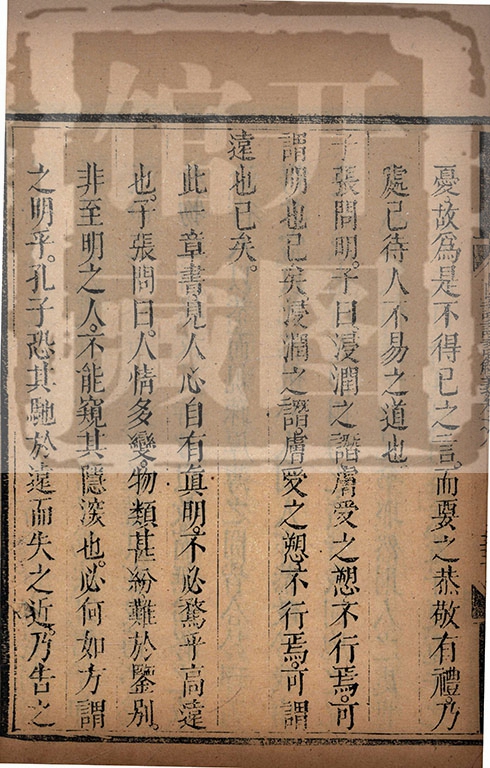 憂故爲是不得已之言。而要之恭敬有禮乃
處己待人不易之道也
子張問明。子曰。浸潤之譖膚受之愬不行焉。可
謂明也已矣浸潤之譖。膚受之愬。不行焉。可謂
遠也已矣。
此 章書。見人心自有眞明。不必騖乎高遠
也。子張問曰。人情多變。物類甚紛難於鑒别。
非至明之人。不能窺其隱深也。必何如方謂
之明乎。孔子恐其馳於遠而失之近。乃告之